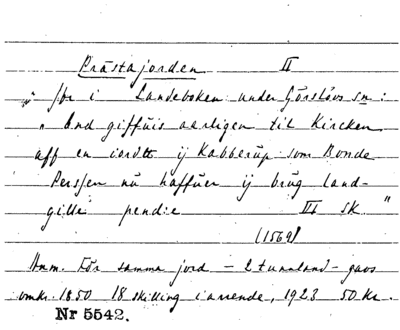 Prästajorden II
" för i Landeboken under Görslövs sn:
" End giffuis aarligen til Kircken
aff en iordtt ij Kabberup som Bonde
Perssen nu haffuer ij brug land-
gille pendie III sk. "
(1569)
Anm. För samma jord – 2 tunnland – gavs
omkr. 1850 18 skilling i arrende, 1923 50 kr.
Nr 5542.